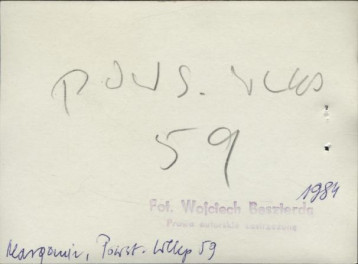 POWS. WLKP
59
1984
Fot. Wojciech Beszterda
Prawa autorskie zastrzeżone
Margonin, Powst. Wlkp 59